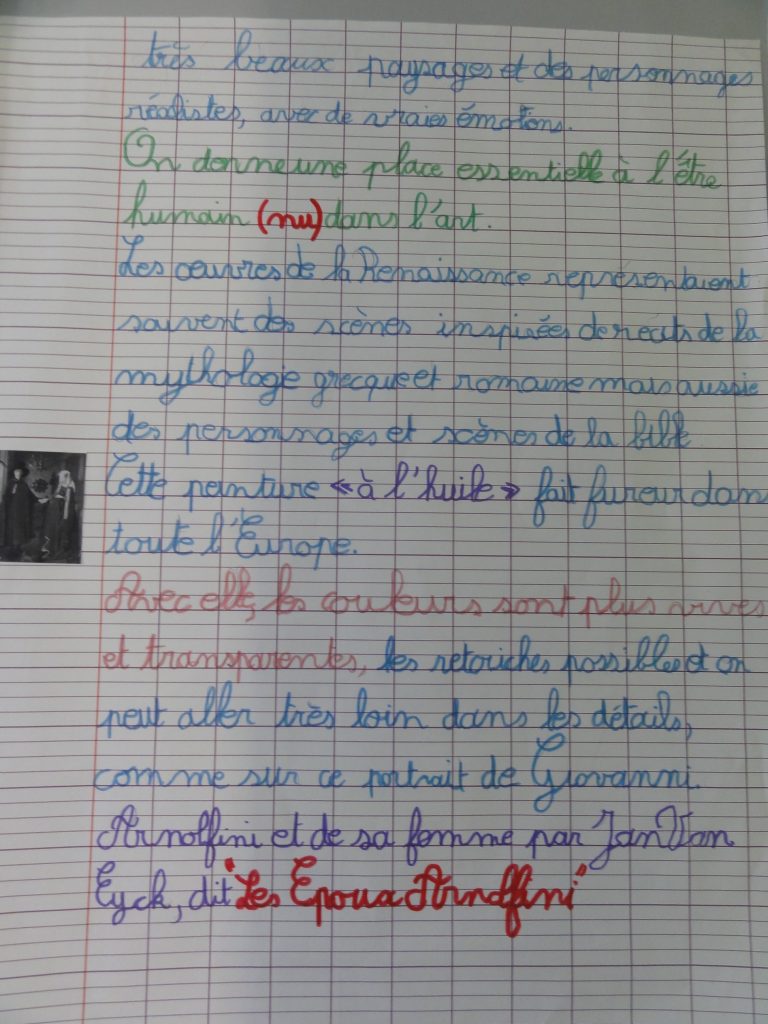 très beaux paysages et des personnages
réalistes, avec de vraies émotions.
On donne une place essentielle à l'être
humain (nu) dans l'art.
Les œuvres de la Renaissance représentaient
souvent des scènes inspirées de récits de la
mythologie grecque et romaine mais aussi
des personnages et scènes de la bible
Cette peinture « à l'huile » fait fureur dans
toute l'Europe.
Avec elle, les couleurs sont plus vives
et transparentes, les retouches possibles et on
peut aller très loin dans les détails,
comme sur ce portrait de Giovanni.
Arnolfini et de sa femme par Jan Van
Eyck, dit "Les Epoux Arnolfini"